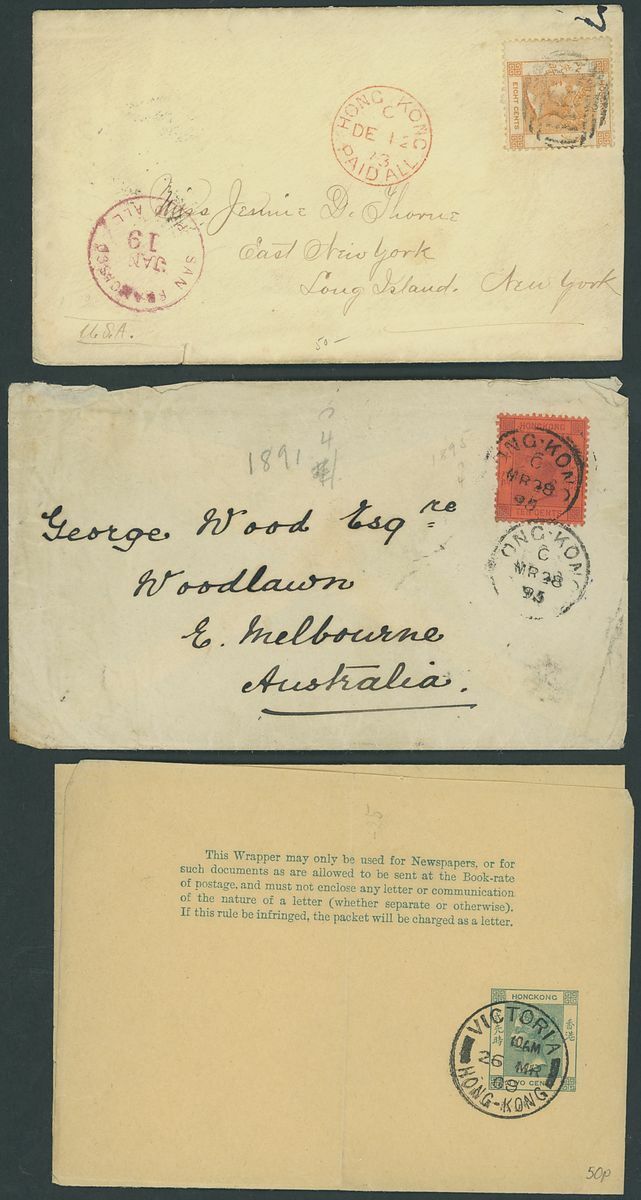 HONG KONG
C
DE 12
73
PAID ALL
EIGHT CENTS
SAN FRANCISCO
JAN
19
ALL
Miss Jennie D. Thorne
East New York
Long Island. New York
U.S.A.
50-
HONGKONG
TEN CENTS
HONG-KONG
C
MR 28
95
1891
4
1895
HONG-KONG
C
MR 28
95
George Wood Esqre
Woodlawn
E. Melbourne
Australia.
This Wrapper may only be used for Newspapers, or for
such documents as are allowed to be sent at the Book-rate
of postage, and must not enclose any letter or communication
of the nature of a letter (whether separate or otherwise).
If this rule be infringed, the packet will be charged as a letter.
HONGKONG
香港
TWO CENTS
VICTORIA
10AM
26 MR
08
HONG-KONG
50p